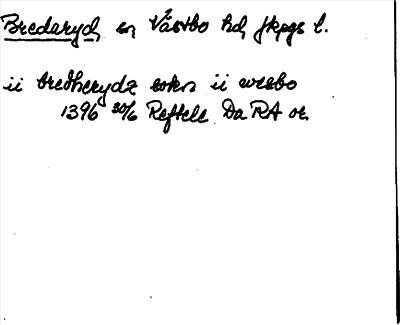 Bredaryd, sn Västbo hd, Jkpgs l.
ii bredherydz sokn ii wesbo
1396 30/6 Reftele Da RA or.